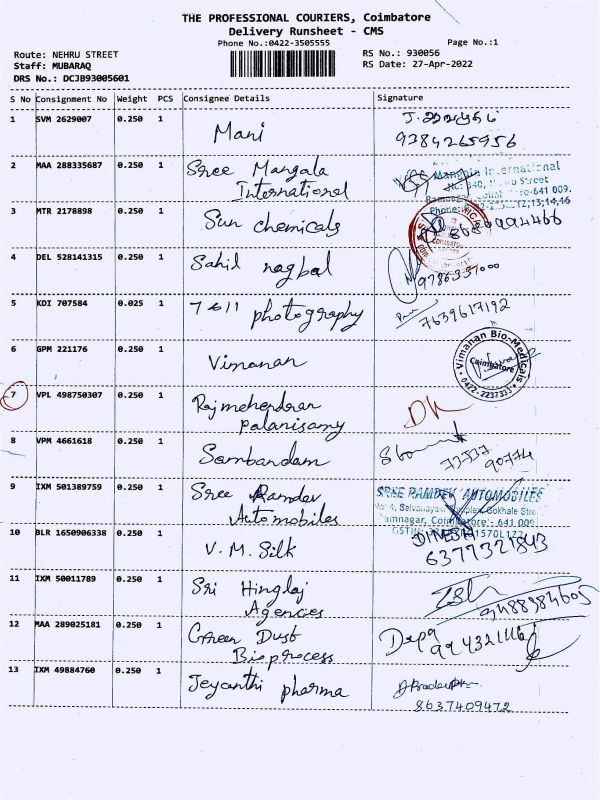 THE PROFESSIONAL COURIERS, Coimbatore
Delivery Runsheet - CMS
Phone No.:0422-3505555
Page No.:1
Route: NEHRU STREET
RS No.: 930056
Staff: MUBARAQ
RS Date: 27-Apr-2022
DRS No.: DCJB93005601
S No Consignment No Weight PCS Consignee Details Signature
1 SVM 2629007 0.250 1 Mani
9384265956
2 MAA 288335687 0.250 1 Sree Mangala
International
Mangala International
Street
641 009.
3 MTR 2178898 0.250 1 Sun chemicals
4 DEL 528141315 0.250 1 Sahil nagpal
5 KDI 707584 0.025 1 7611 photography
7639617192
6 GPM 221176 0.250 1 Vimanan
Vimanan Bio-Medicals
Coimbatore
0422-2237333
7 VPL 498750307 0.250 1 Rajmehendran
palanisamy
8 VPM 4661618 0.250 1 Sambandam
73537
90774
9 IXM 501389759 0.250 1 Sree Ramdev
Automobiles
SREE RAMDEV AUTOMOBILES
Gokhale Street
Ramnagar, Coimbatore - 641 009
10 BLR 1650906338 0.250 1 V. M. Silk
DINESH
6377321843
11 IXM 50011789 0.250 1 Sri Hinglaj
Agencies
9488984605
12 MAA 289025181 0.250 1 Green Dust
Bioprocess
Deepa
13 IXM 49884760 0.250 1 Jeyanthi pharma
8637409472